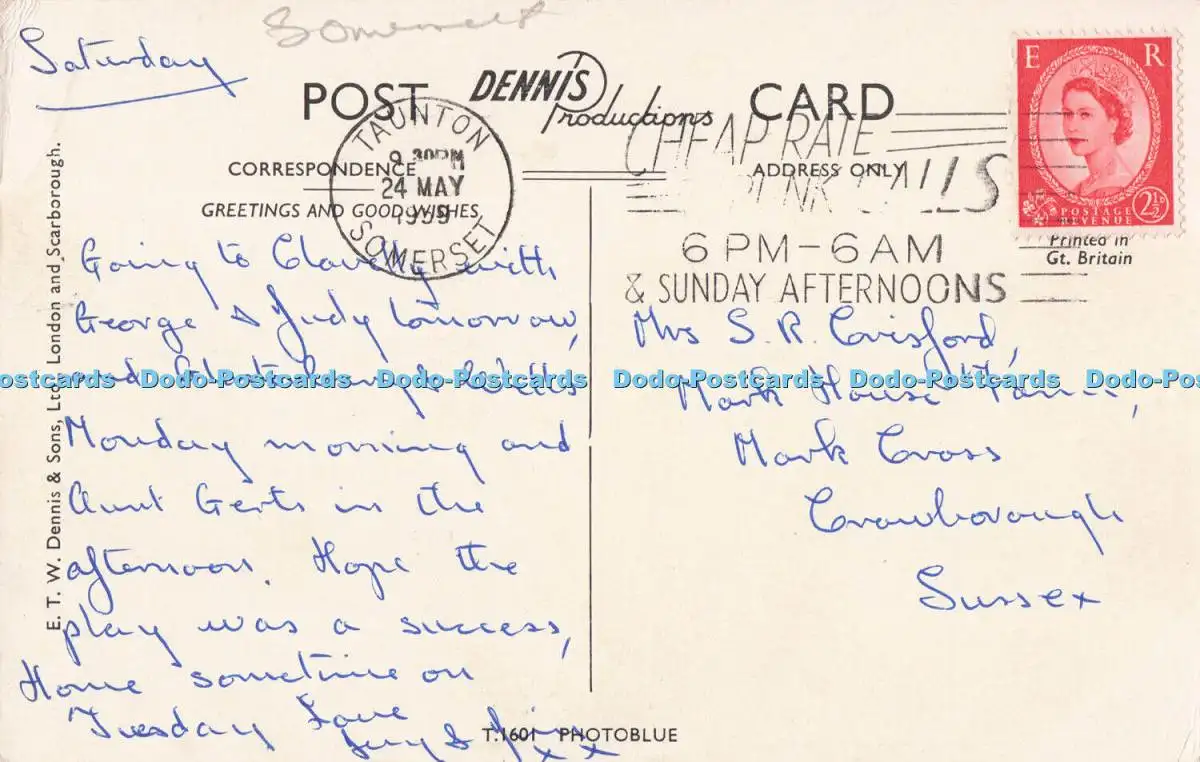 Somerset
Saturday
POST CARD
DENNIS
Productions
TAUNTON
9.30PM
24 MAY
SOMERSET
CHEAP RATE
6 PM – 6 AM
& SUNDAY AFTERNOONS
E R
POSTAGE
REVENUE
2½D
CORRESPONDENCE
GREETINGS AND GOOD WISHES
ADDRESS ONLY
Printed in
Gt. Britain
E. T. W. Dennis & Sons, Ltd., London and Scarborough.
Going to Clovelly with
George & Judy tomorrow,
and
Monday morning and
Aunt Gerts in the
afternoon. Hope the
play was a success,
Home sometime on
Tuesday Love
&
xx
Mrs S. R. Crisford,
Mark House Farm,
Mark Cross
Crowborough
Sussex
T.1601 PHOTOBLUE
Dodo-Postcards Dodo-Postcards Dodo-Postcards Dodo-Postcards Dodo-Postcards